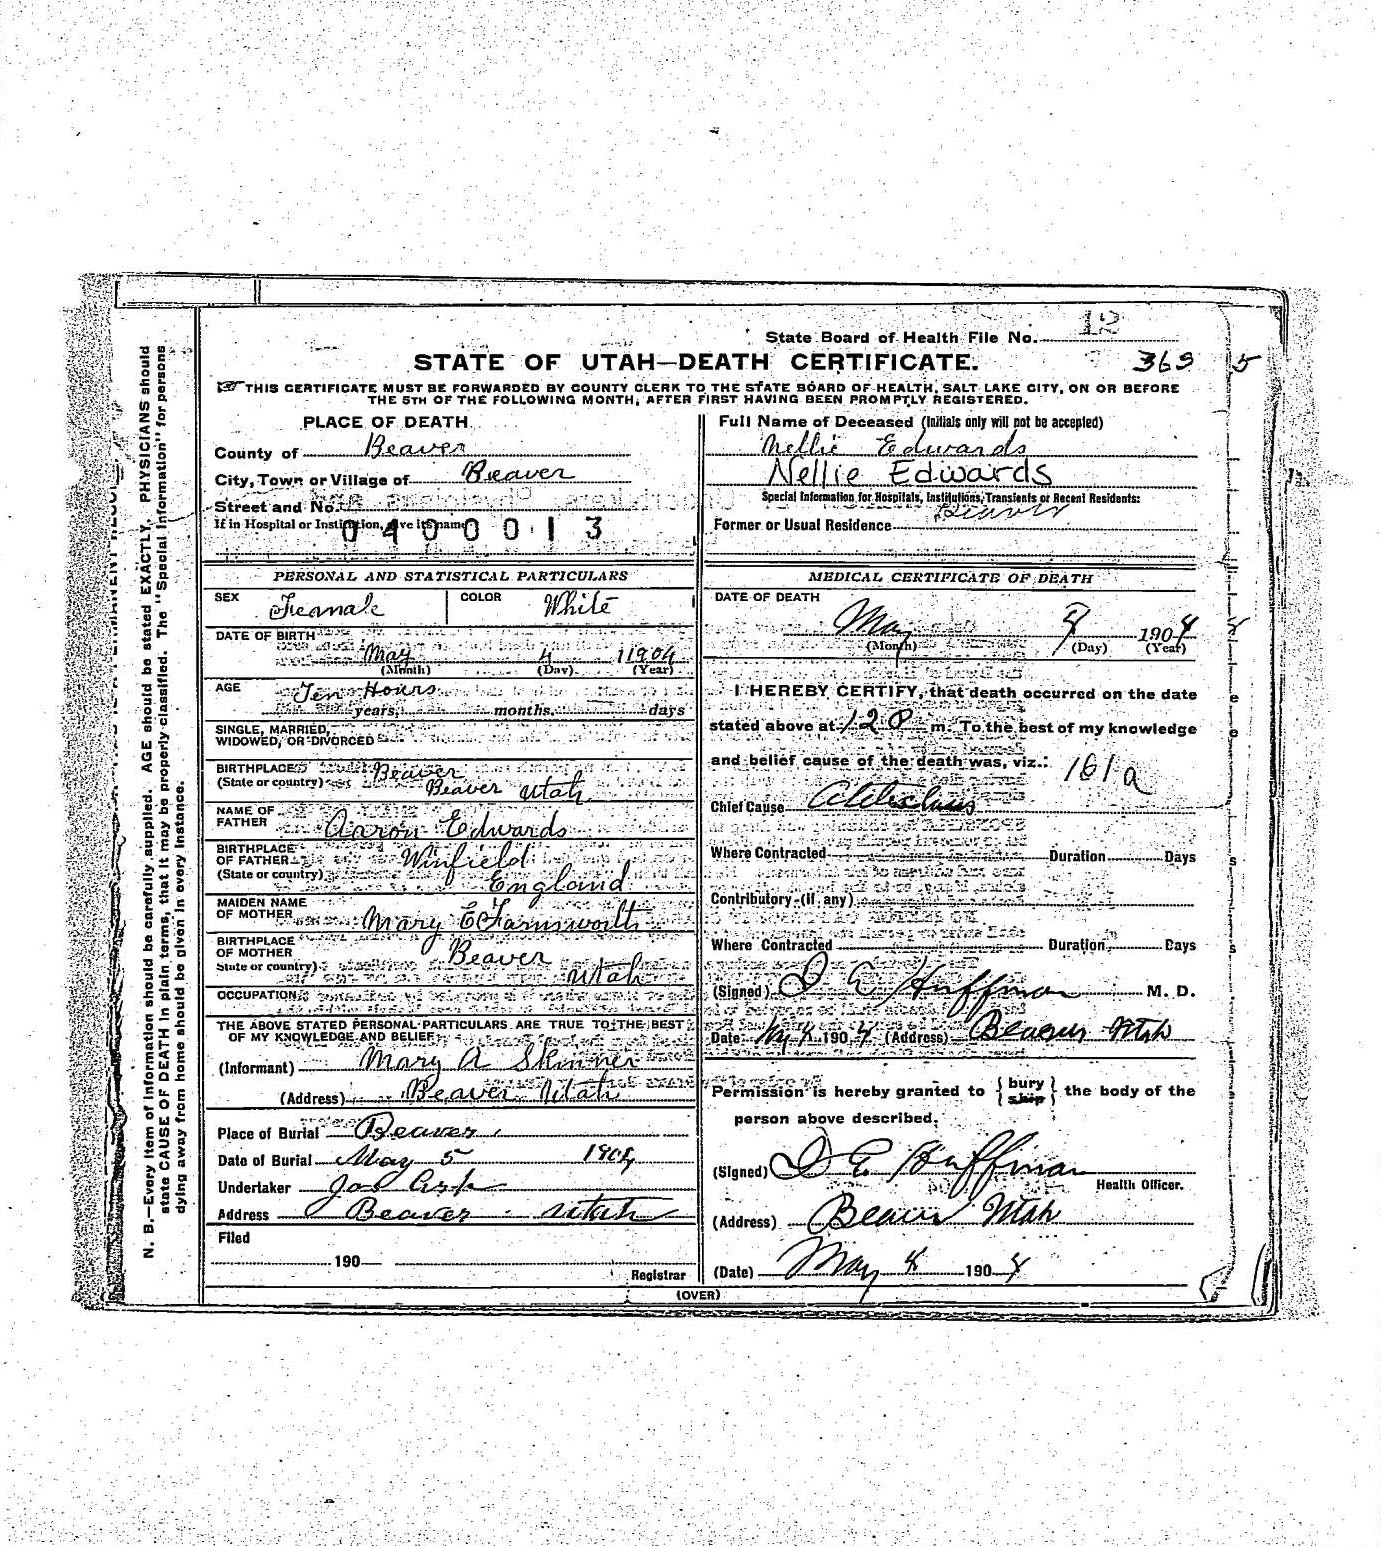 State Board of Health File No. 12
STATE OF UTAH—DEATH CERTIFICATE.
363 5
THIS CERTIFICATE MUST BE FORWARDED BY COUNTY CLERK TO THE STATE BOARD OF HEALTH, SALT LAKE CITY, ON OR BEFORE
THE 5TH OF THE FOLLOWING MONTH, AFTER FIRST HAVING BEEN PROMPTLY REGISTERED.
PLACE OF DEATH
County of Beaver
City, Town or Village of Beaver
Street and No.
If in Hospital or Institution, give its name
0400013
Full Name of Deceased (Initials only will not be accepted)
Nellie Edwards
Nellie Edwards
Special Information for Hospitals, Institutions, Transients or Recent Residents:
Former or Usual Residence Beaver
PERSONAL AND STATISTICAL PARTICULARS
SEX Feamale COLOR White
DATE OF BIRTH
May 4 1904
(Month) (Day) (Year)
AGE Ten Hours
years, months, days
SINGLE, MARRIED,
WIDOWED, OR DIVORCED
BIRTHPLACE Beaver
(State or country) Beaver Utah
NAME OF
FATHER Aaron Edwards
BIRTHPLACE
OF FATHER Winfield
(State or country) England
MAIDEN NAME
OF MOTHER Mary E Farnsworth
BIRTHPLACE
OF MOTHER Beaver
State or country) Utah
OCCUPATION
THE ABOVE STATED PERSONAL PARTICULARS ARE TRUE TO THE BEST
OF MY KNOWLEDGE AND BELIEF
(Informant) Mary A Skinner
(Address) Beaver Utah
Place of Burial Beaver
Date of Burial May 5 1904
Undertaker
Address Beaver Utah
Filed
190
Registrar
MEDICAL CERTIFICATE OF DEATH
DATE OF DEATH
May 1904
(Month) (Day) (Year)
I HEREBY CERTIFY, that death occurred on the date
stated above at 12 P m. To the best of my knowledge
and belief cause of the death was, viz.:
161a
Chief Cause
Where Contracted Duration Days
Contributory (if any)
Where Contracted Duration Days
(Signed) Huffman M. D.
Date 190 (Address) Beaver Utah
Permission is hereby granted to { bury ship } the body of the
person above described.
(Signed) Huffman
Health Officer.
(Address) Beaver Utah
(Date) May 4 1904
(OVER)
N. B.—Every item of information should be carefully supplied. AGE should be stated EXACTLY. PHYSICIANS should
state CAUSE OF DEATH in plain terms, that it may be properly classified. The "Special Information" for persons
dying away from home should be given in every instance.